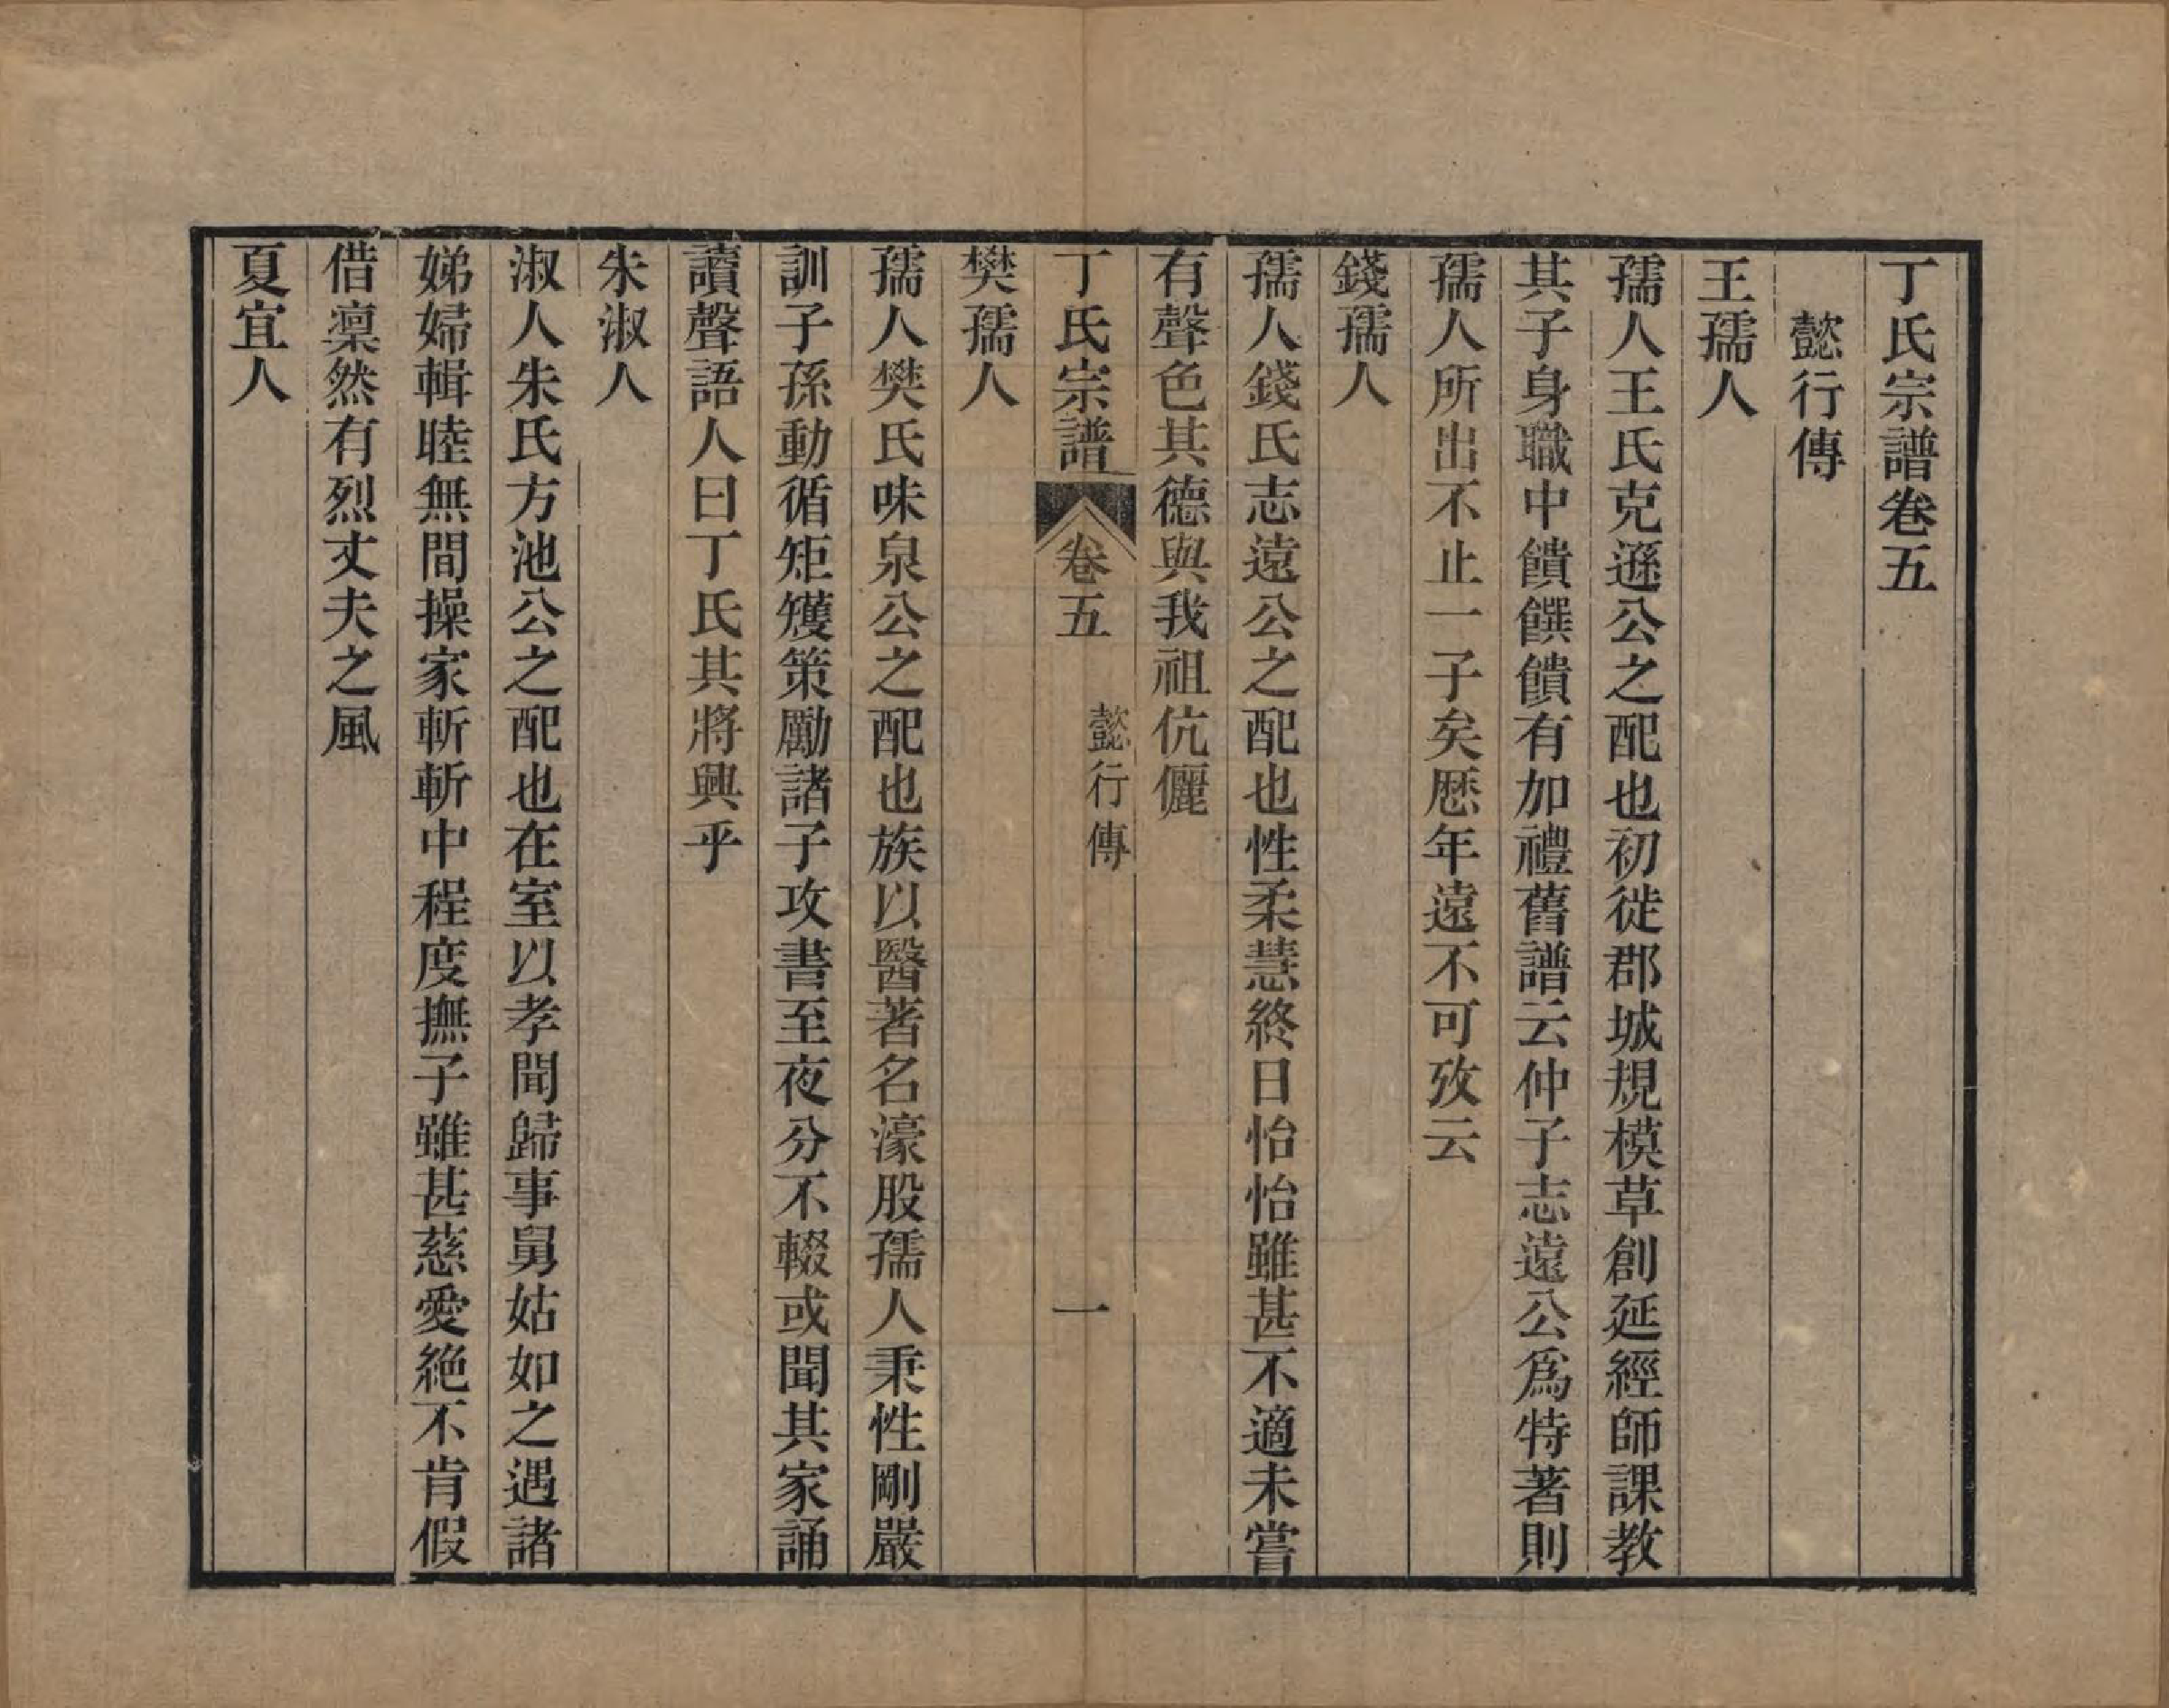 丁氏宗譜卷五
懿行傳
王孺人
孺人王氏克遜公之配也初徙郡城規模草創延經師課教
其子身職中饋饌饋有加禮舊譜云仲子志遠公爲特著則
孺人所出不止一子矣歷年遠不可攷云
錢孺人
孺人錢氏志遠公之配也性柔慧終日怡怡雖甚不適未嘗
有聲色其德與我祖伉儷
丁氏宗譜 卷五 懿行傳 一
樊孺人
孺人樊氏味泉公之配也族以醫著名濠股孺人秉性剛嚴
訓子孫動循矩矱策勵諸子攻書至夜分不輟或聞其家誦
讀聲語人曰丁氏其將興乎
朱淑人
淑人朱氏方池公之配也在室以孝聞歸事舅姑如之遇諸
娣婦輯睦無間操家斬斬中程度撫子雖甚慈愛絶不肯假
借凛然有烈丈夫之風
夏宜人